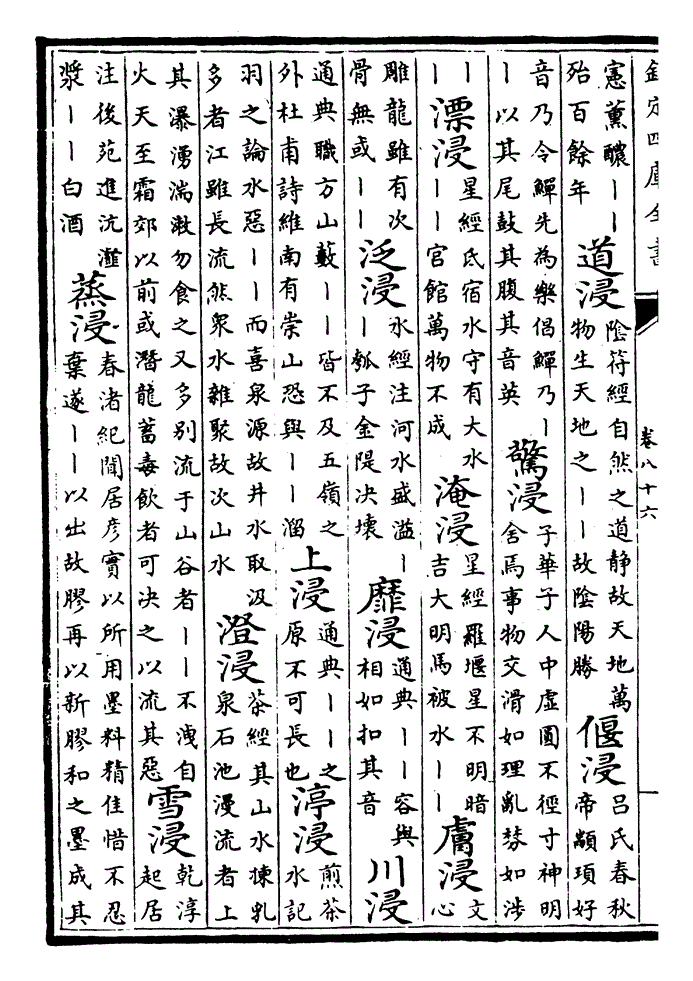 欽定四庫全書 卷八十六
憲薰醲丨丨殆百餘年 道浸 陰符經自然之道静故天地萬物生天地之丨丨故陰陽勝 偃浸 吕氏春秋帝顓項好
音乃令鱓先為樂倡鱓乃丨丨以其尾鼓其腹其音英 驚浸 子華子人中虛圓不徑寸神明舍焉事物交滑如理亂棼如涉
丨丨 漂浸 星經氐宿水守有大水丨丨官館萬物不成 淹浸 星經羅堰星不明暗吉大明馬被水丨丨 膚浸 文心
雕龍雖有次骨無或丨丨 泛浸 水經注河水盛溢丨丨瓠子金隄决壞 靡浸 通典丨丨容與相如扣其音 川浸
通典職方山藪丨丨皆不及五嶺之外杜甫詩維南有崇山恐與丨丨溜 上浸 通典丨丨之原不可長也 渟浸 煎茶水記
羽之論水惡丨丨而喜泉源故井水取汲多者江雖長流然衆水雜聚故次山水 澄浸 茶經其山水揀乳泉石池漫流者上
其瀑湧湍漱勿食之又多别流于山谷者丨丨不洩自火天至霜郊以前或潛龍蓄毒飲者可决之以流其惡 雪浸 乾淳起居
注後苑進沆瀣漿丨丨白酒 蒸浸 春渚紀聞居彦實以所用墨料精佳惜不忍棄遂丨丨以出故膠再以新膠和之墨成其